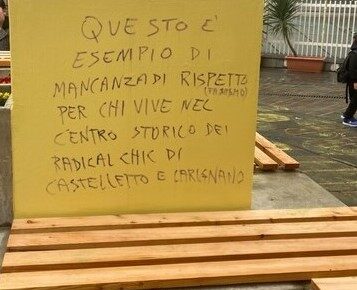 QUESTO È
ESEMPIO DI
MANCANZA DI RISPETTO
(FASCISMO)
PER CHI VIVE NEL
CENTRO STORICO DEI
RADICAL CHIC DI
CASTELLETTO E CARIGNANO